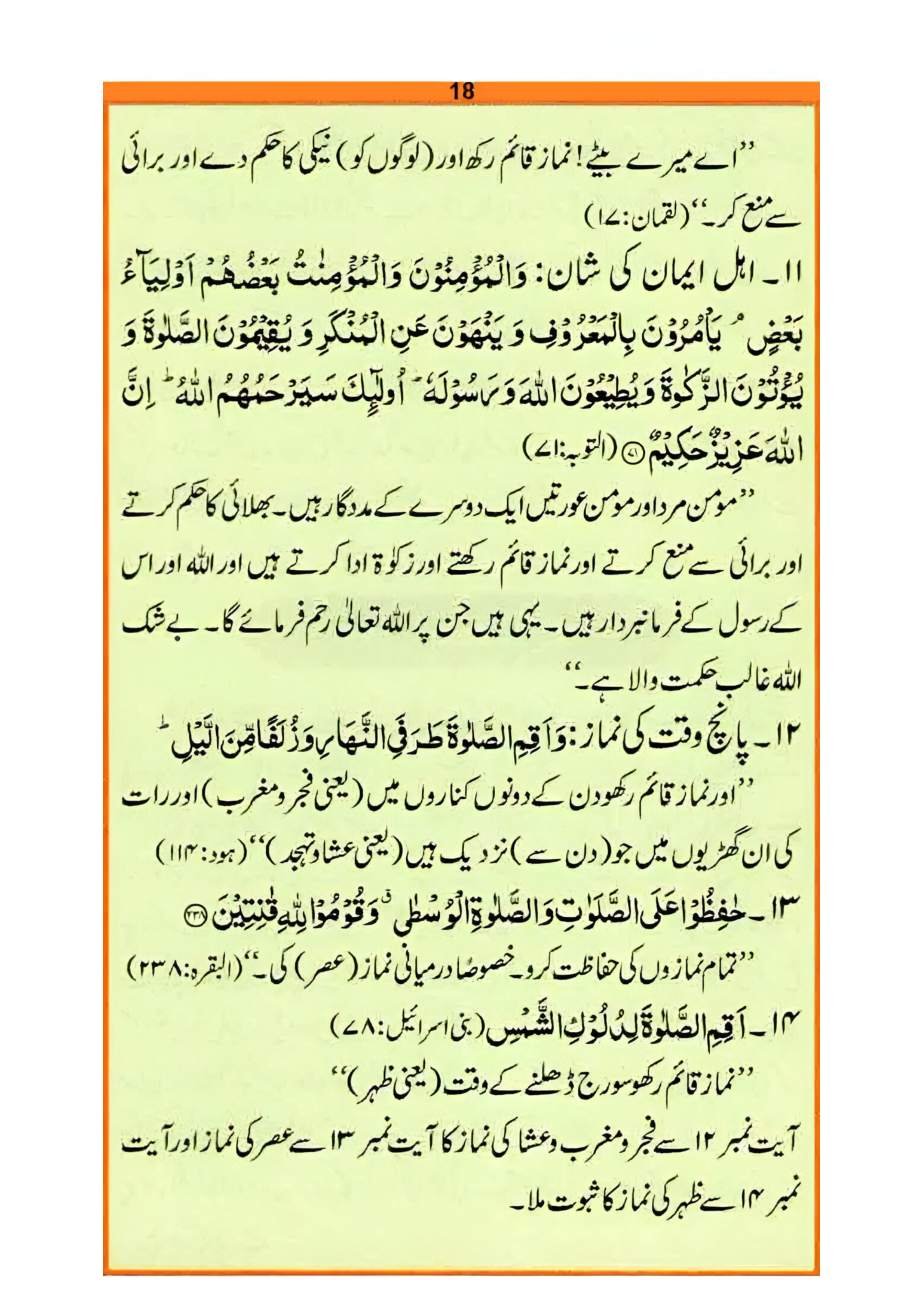 18
’’اے میرے بیٹے! نماز قائم رکھ اور (لوگوں کو) نیکی کا حکم دے اور برائی
سے منع کر۔‘‘ (لقمان:۱۷)
۱۱۔ اہل ایمان کی شان: وَالْمُؤْمِنُوْنَ وَالْمُؤْمِنٰتُ بَعْضُهُمْ اَوْلِيَآءُ
بَعْضٍ ۘ يَاْمُرُوْنَ بِالْمَعْرُوْفِ وَ يَنْهَوْنَ عَنِ الْمُنْكَرِ وَ يُقِيْمُوْنَ الصَّلٰوةَ وَ
يُؤْتُوْنَ الزَّكٰوةَ وَ يُطِيْعُوْنَ اللّٰهَ وَ رَسُوْلَهٗ ؕ اُولٰٓىِٕكَ سَيَرْحَمُهُمُ اللّٰهُ ؕ اِنَّ
اللّٰهَ عَزِيْزٌ حَكِيْمٌ ﴿۷۱﴾ (التوبہ:۷۱)
’’مومن مرد اور مومن عورتیں ایک دوسرے کے مددگار ہیں۔ بھلائی کا حکم کرتے
اور برائی سے منع کرتے اور نماز قائم رکھتے اور زکوٰۃ ادا کرتے ہیں اور اللہ اور اس
کے رسول کے فرمانبردار ہیں۔ یہی ہیں جن پر اللہ تعالیٰ رحم فرمائے گا۔ بے شک
اللہ غالب حکمت والا ہے۔‘‘
۱۲۔ پانچ وقت کی نماز: وَ اَقِمِ الصَّلٰوةَ طَرَفَيِ النَّهَارِ وَ زُلَفًا مِّنَ الَّيْلِ ؕ
’’اور نماز قائم رکھو دن کے دونوں کناروں میں (یعنی فجر و مغرب) اور رات
کی ان گھڑیوں میں جو (دن سے) نزدیک ہیں (یعنی عشا و تہجد)‘‘ (ہود:۱۱۴)
۱۳۔ حٰفِظُوْا عَلَى الصَّلَوٰتِ وَ الصَّلٰوةِ الْوُسْطٰى ۗ وَ قُوْمُوْا لِلّٰهِ قٰنِتِيْنَ ﴿۲۳۸﴾
’’تمام نمازوں کی حفاظت کرو۔ خصوصاً درمیانی نماز (عصر) کی۔‘‘ (البقرہ:۲۳۸)
۱۴۔ اَقِمِ الصَّلٰوةَ لِدُلُوْكِ الشَّمْسِ (بنی اسرائیل:۷۸)
’’نماز قائم رکھو سورج ڈھلنے کے وقت (یعنی ظہر)‘‘
آیت نمبر ۱۲ سے فجر و مغرب و عشا کی نماز کا آیت نمبر ۱۳ سے عصر کی نماز اور آیت
نمبر ۱۴ سے ظہر کی نماز کا ثبوت ملا۔